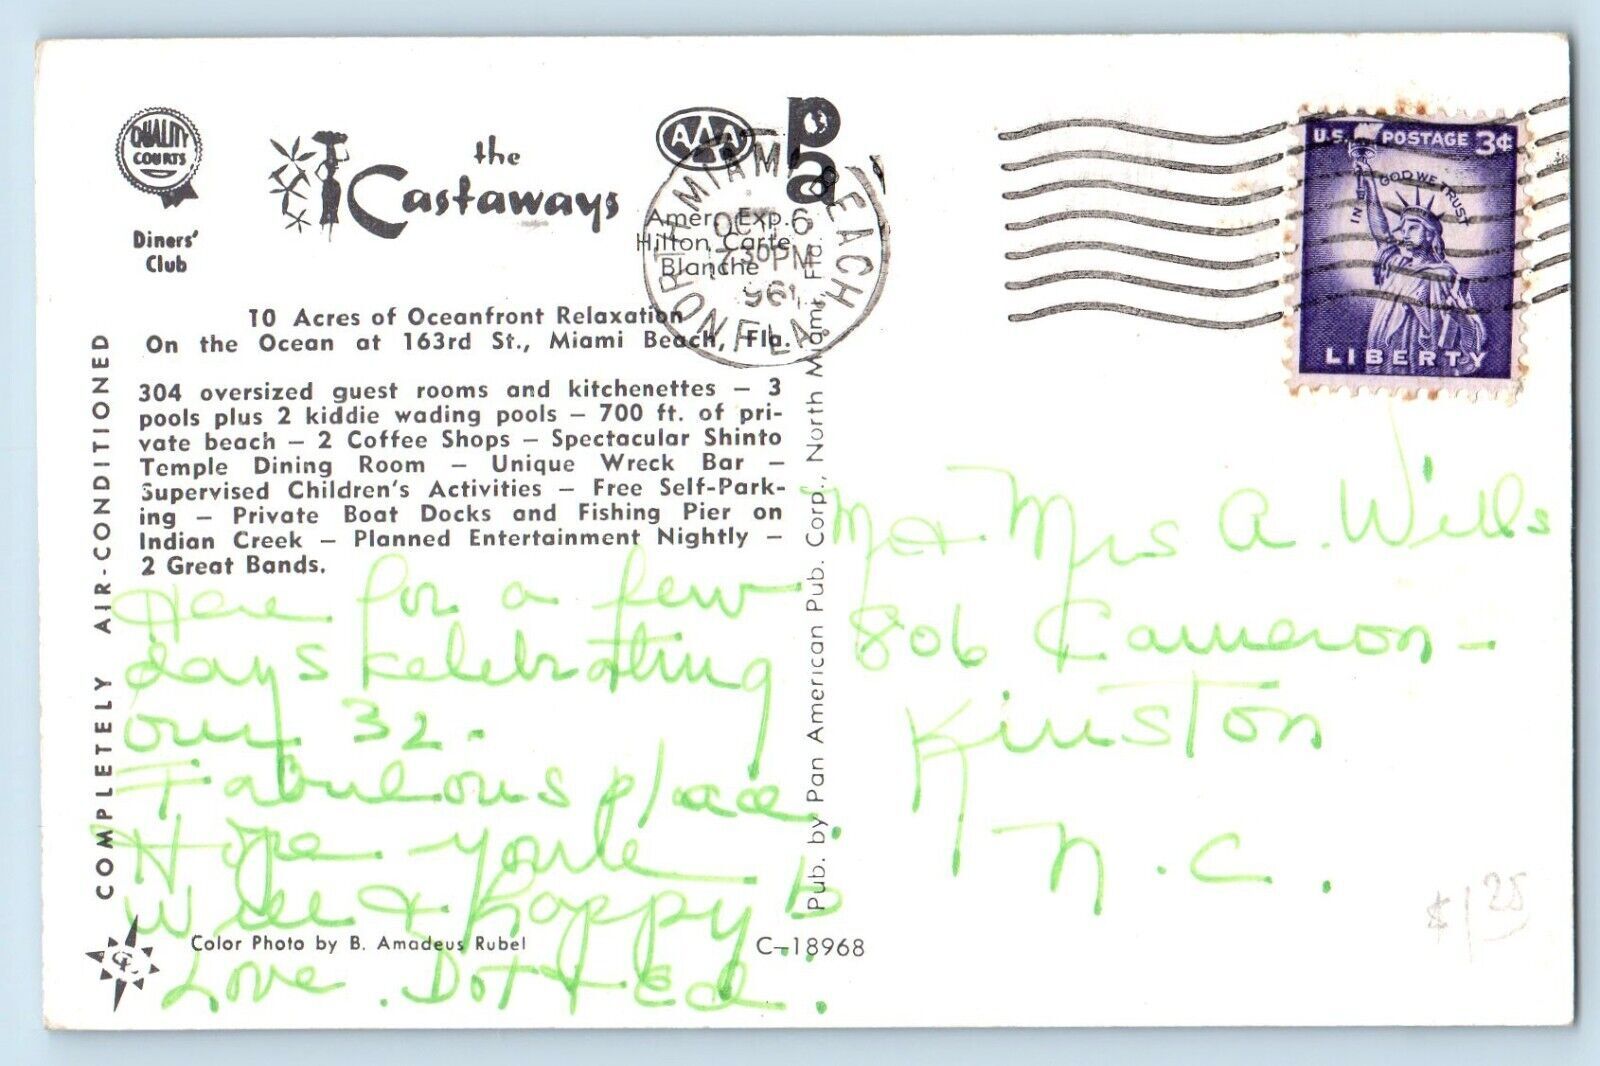 QUALITY
COURTS
Diners'
Club
the
Castaways
AAA
pa
Amer. Exp.
Hilton Carte
Blanche
NORTH MIAMI BEACH FLA.
OCT 6
730 PM
1961
U.S. POSTAGE 3¢
IN GOD WE TRUST
LIBERTY
10 Acres of Oceanfront Relaxation
On the Ocean at 163rd St., Miami Beach, Fla.
304 oversized guest rooms and kitchenettes – 3
pools plus 2 kiddie wading pools – 700 ft. of pri-
vate beach – 2 Coffee Shops – Spectacular Shinto
Temple Dining Room – Unique Wreck Bar –
Supervised Children's Activities – Free Self-Park-
ing – Private Boat Docks and Fishing Pier on
Indian Creek – Planned Entertainment Nightly –
2 Great Bands.
COMPLETELY AIR-CONDITIONED
Here for a few
days celebrating
our 32.
Fabulous place.
Hope you're
well & happy
Love. Dot & Ed.
Color Photo by B. Amadeus Rubel
C-18968
Pub. by Pan American Pub. Corp., North Miami, Fla.
Mr & Mrs A. Wells
806 Cameron -
Kinston
N.C.
$1 25